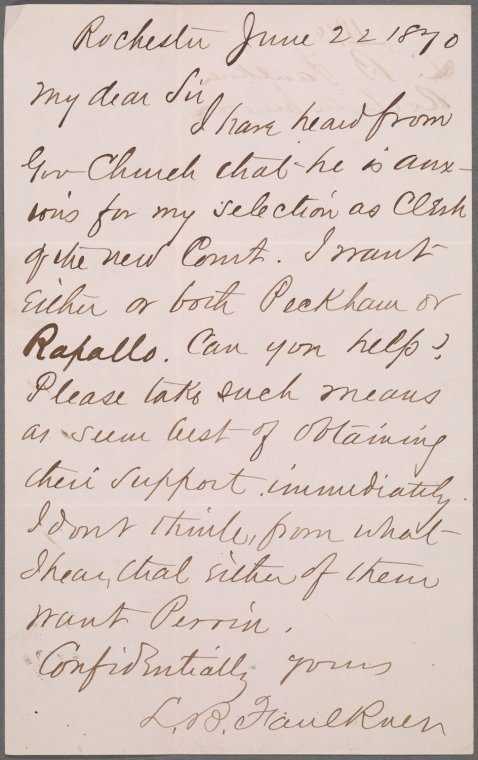 Rochester June 22 1870
My dear Sir
I have heard from
Gov Church that he is anx-
ious for my selection as Clerk
of the new Court. I want
either or both Peckham or
Rapallo. Can you help?
Please take such means
as seem best of obtaining
their support immediately.
I don't think, from what
I hear, that either of them
want Perrin.
Confidentially yours
L. B. Faulkner